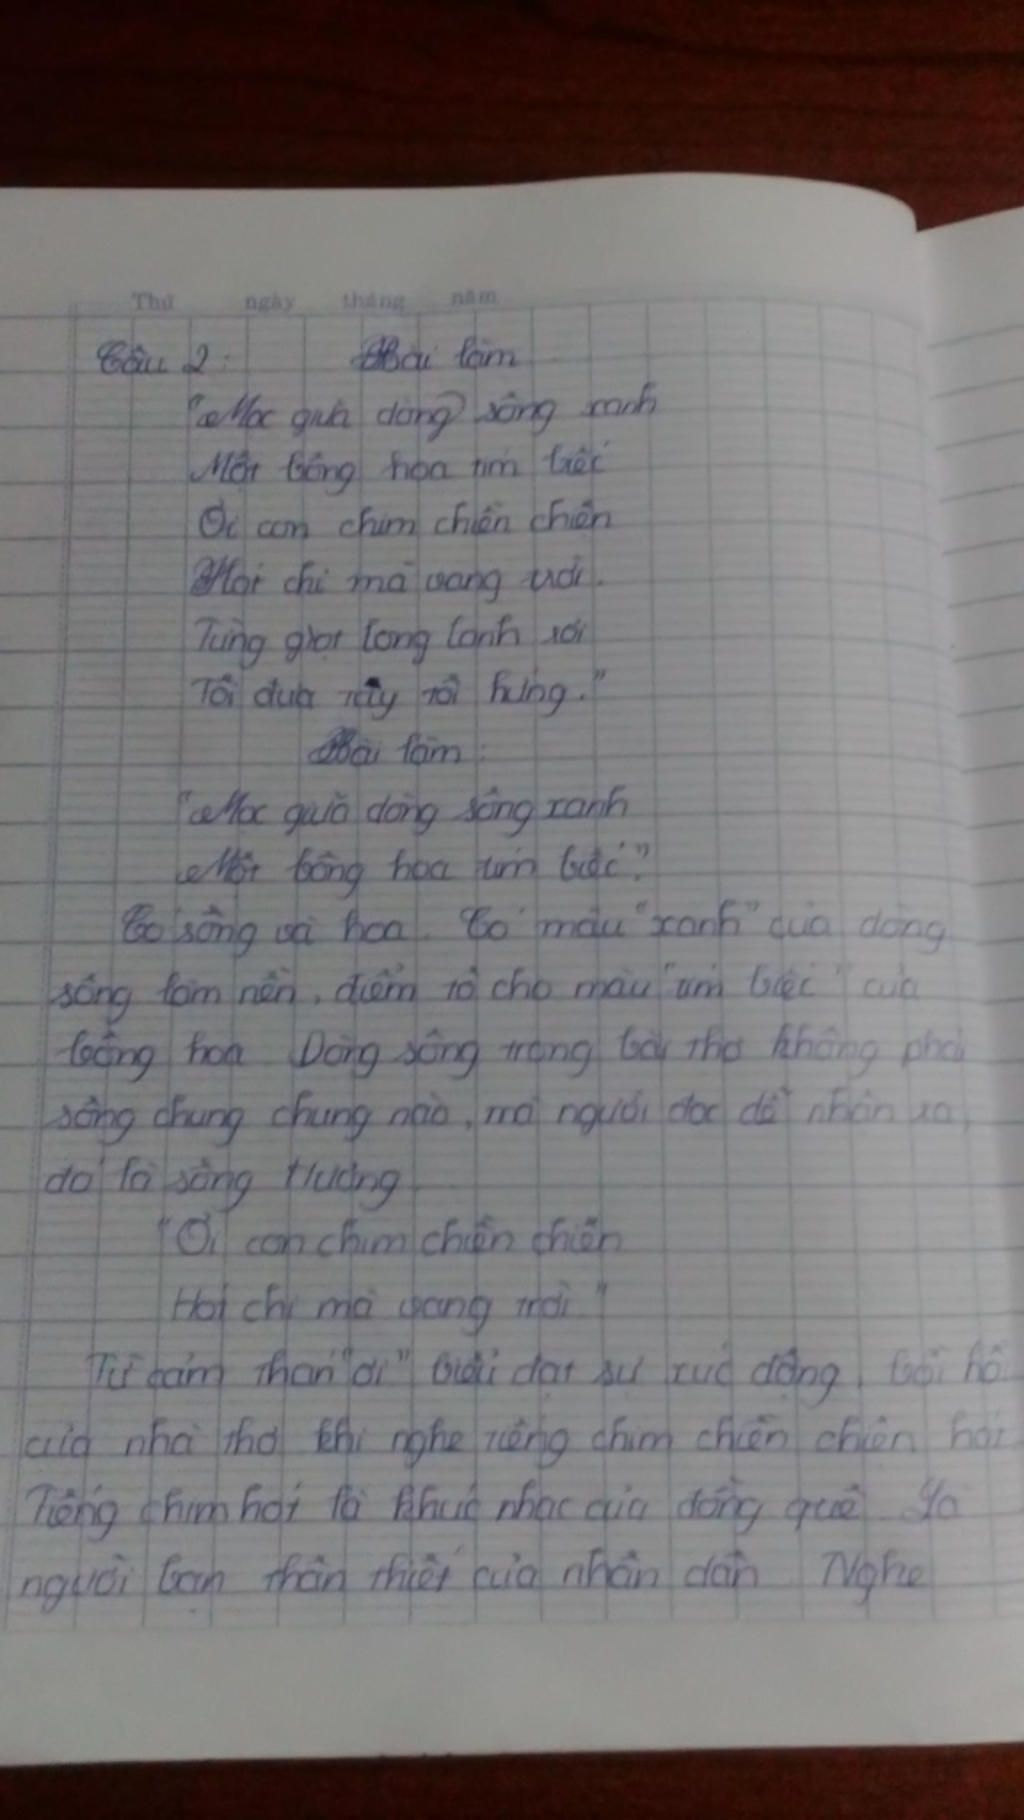 Thứ ngày tháng năm
Câu 2: Bài làm
"Mọc giữa dòng sông xanh
Một bông hoa tím biếc
Ơi con chim chiền chiện
Hót chi mà vang trời.
Từng giọt long lanh rơi
Tôi đưa tay tôi hứng."
Bài làm:
"Mọc giữa dòng sông xanh
Một bông hoa tím biếc."
Có sông và hoa. Có màu "xanh" của dòng
sông làm nền, điểm tô cho màu "tím biếc" của
bông hoa Dòng sông trong bài thơ không phải
sông chung chung nào, mà người đọc dễ nhận ra,
đó là sông Hương
"Ơi con chim chiền chiện
Hót chi mà vang trời"
Từ cảm thán "ơi" biểu đạt sự xúc động, bồi hồi
của nhà thơ khi nghe tiếng chim chiền chiện hót
Tiếng chim hót là khúc nhạc của đồng quê. Là
người bạn thân thiết của nhân dân Nghe